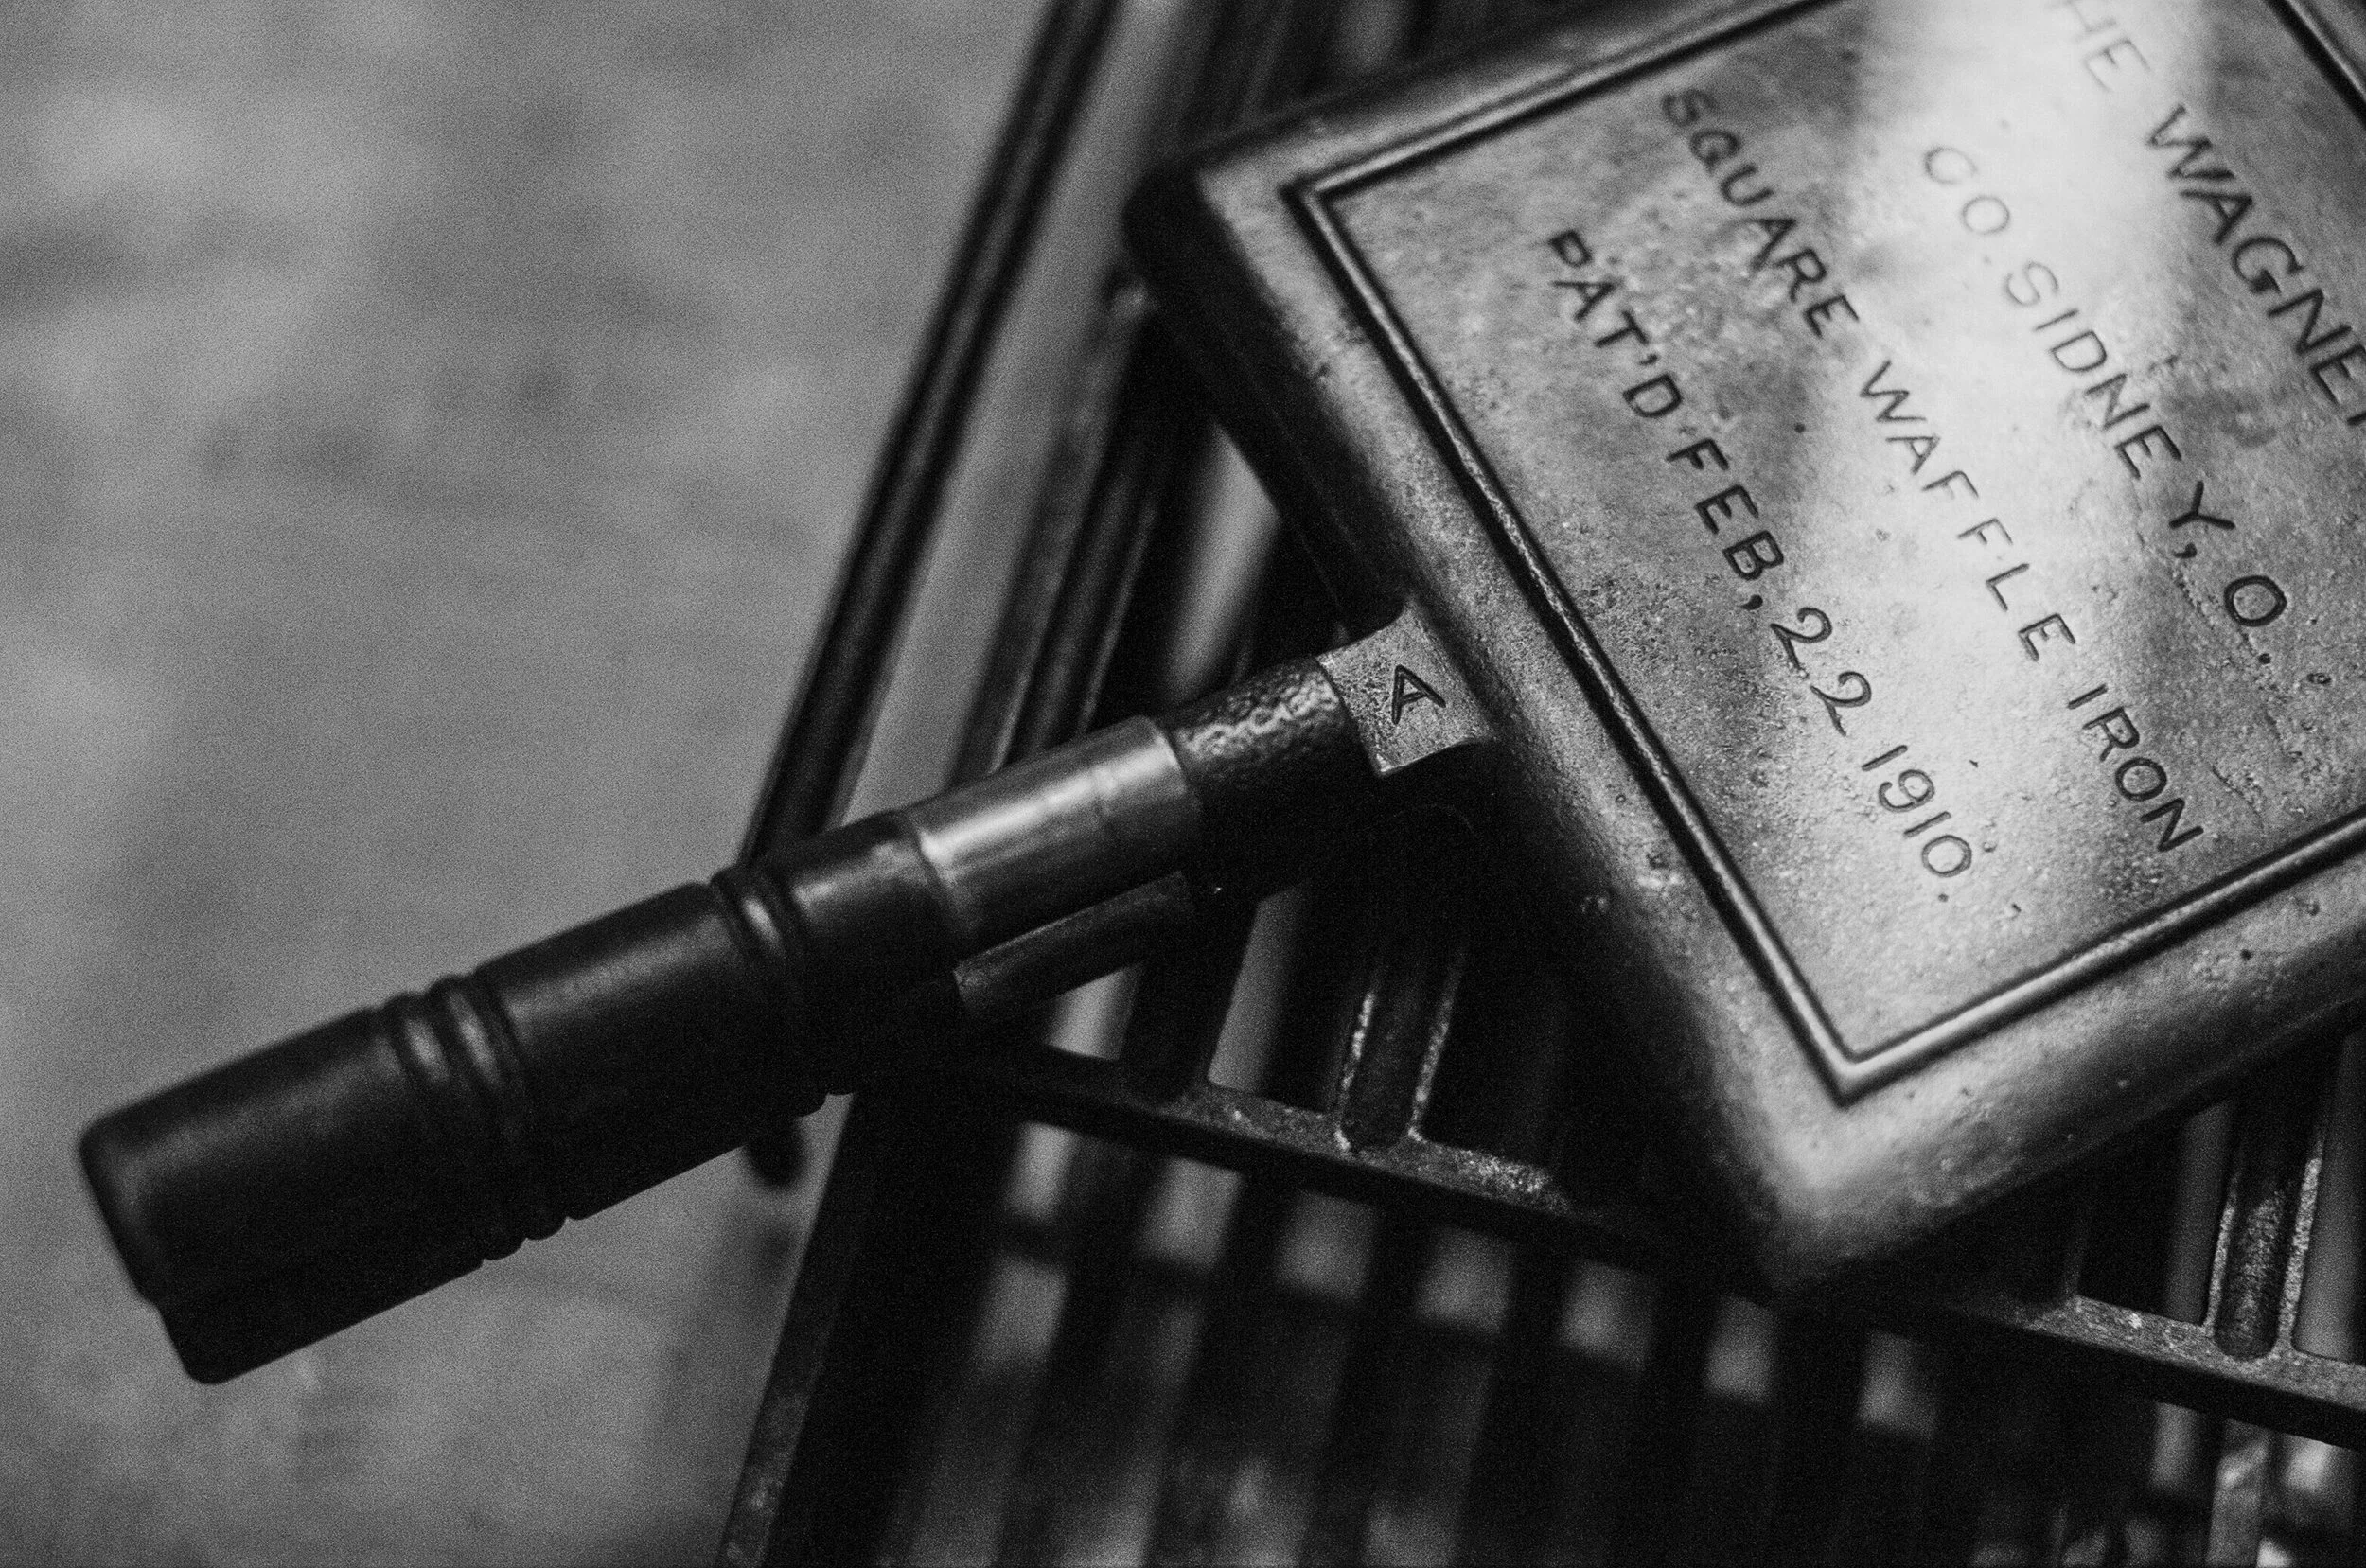 THE WAGNER
CO. SIDNEY, O.
SQUARE WAFFLE IRON
PAT'D FEB, 22 1910.
A